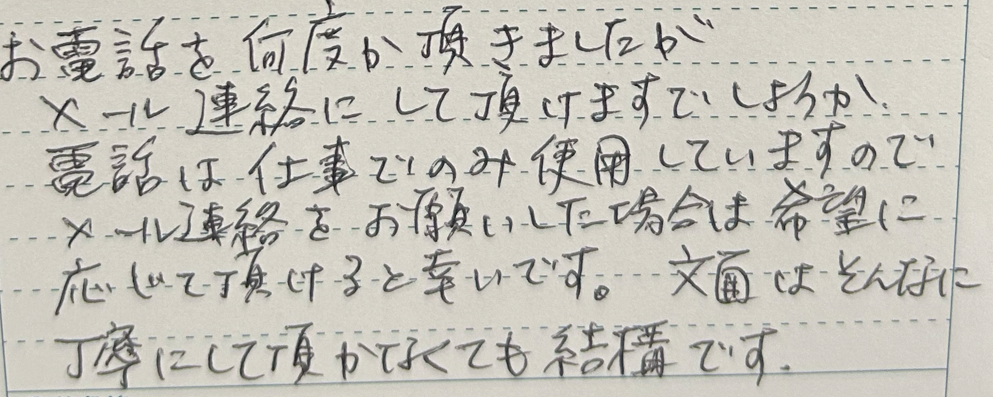 お電話を何度か頂きましたが
メール連絡にして頂けますでしょうか.
電話は仕事でのみ使用していますので
メール連絡をお願いした場合は希望に
応じて頂けると幸いです。文面はそんなに
丁寧にして頂かなくても結構です.